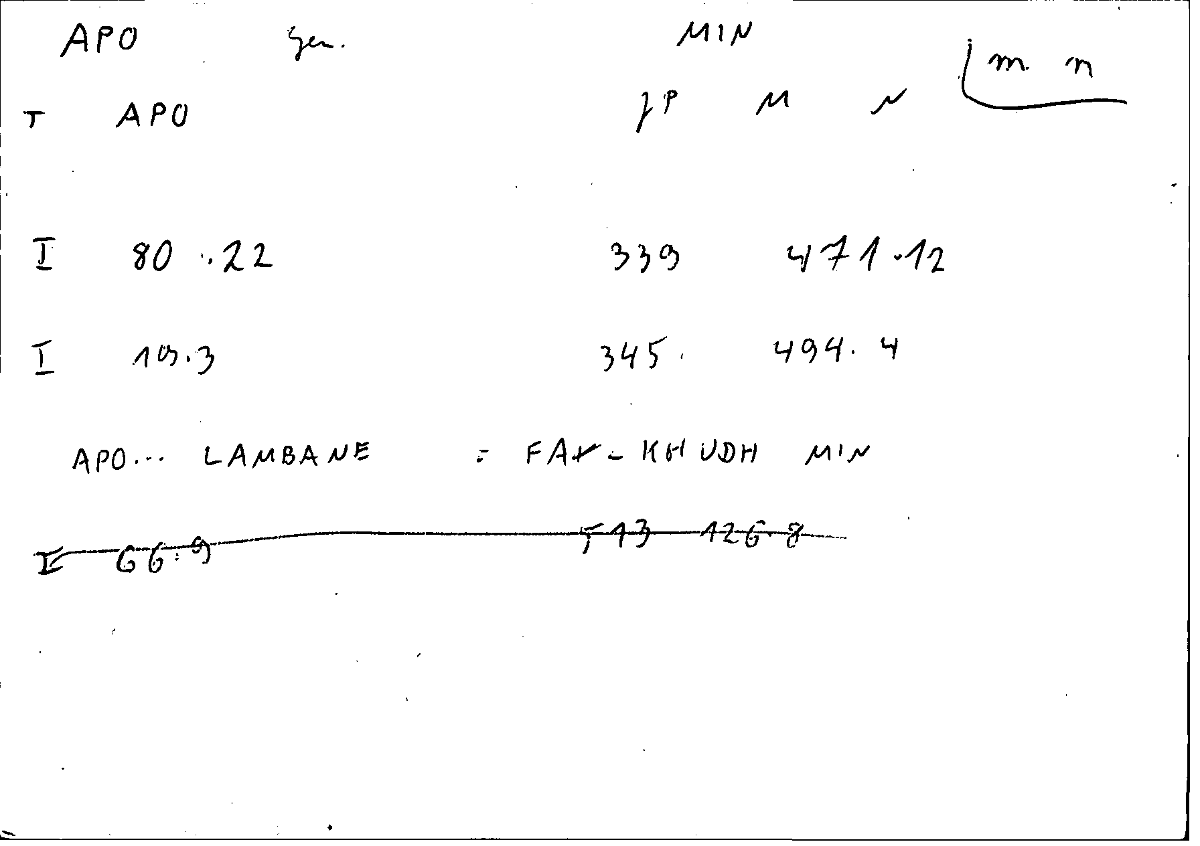 APO gen. MIN
m. n
T APO P M N
I 80 ..22 339 471.12
I 19.3 345. 494. 4
APO... LAMBANE = FA - KHUDH MIN
I 66.9 513 126.8